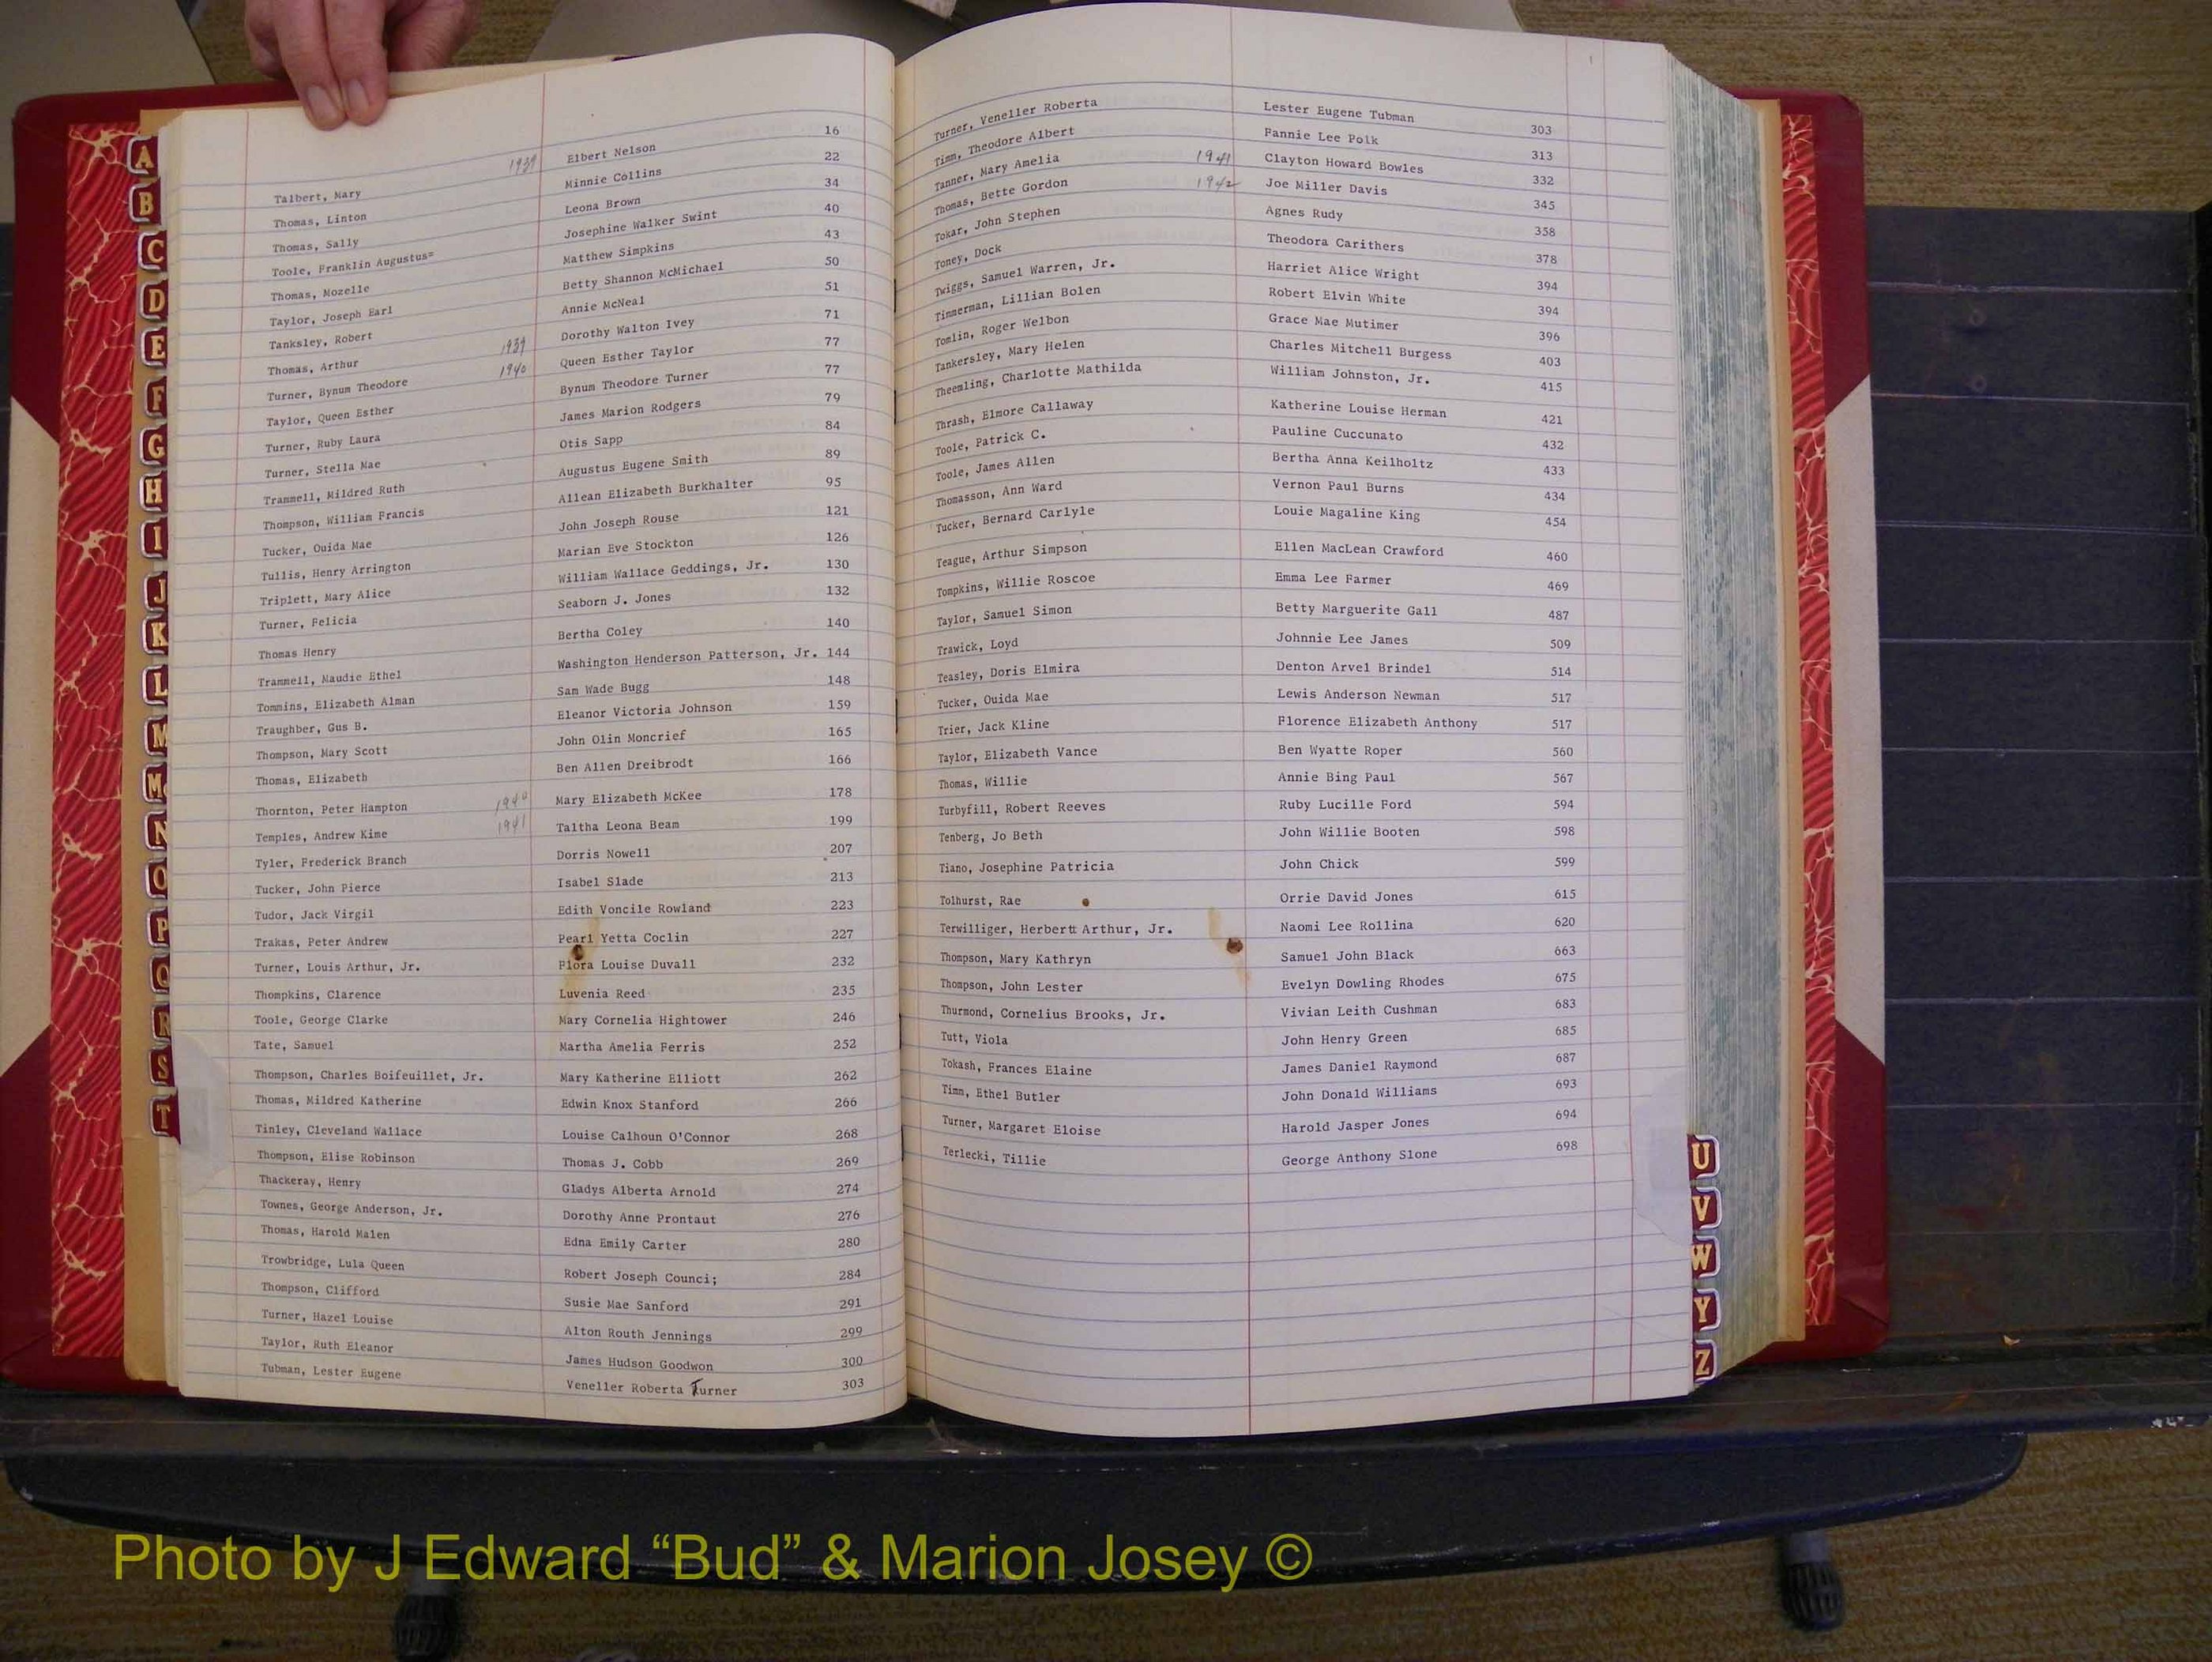 Talbert, Mary 1939 Elbert Nelson 16
Thomas, Linton Minnie Collins 22
Thomas, Sally Leona Brown 34
Toole, Franklin Augustus= Josephine Walker Swint 40
Thomas, Mozelle Matthew Simpkins 43
Taylor, Joseph Earl Betty Shannon McMichael 50
Tanksley, Robert Annie McNeal 51
Thomas, Arthur 1939 Dorothy Walton Ivey 71
Turner, Bynum Theodore 1940 Queen Esther Taylor 77
Taylor, Queen Esther Bynum Theodore Turner 77
Turner, Ruby Laura James Marion Rodgers 79
Turner, Stella Mae Otis Sapp 84
Trammell, Mildred Ruth Augustus Eugene Smith 89
Thompson, William Francis Allean Elizabeth Burkhalter 95
Tucker, Ouida Mae John Joseph Rouse 121
Tullis, Henry Arrington Marian Eve Stockton 126
Triplett, Mary Alice William Wallace Geddings, Jr. 130
Turner, Felicia Seaborn J. Jones 132
Thomas Henry Bertha Coley 140
Trammell, Maudie Ethel Washington Henderson Patterson, Jr. 144
Tommins, Elizabeth Alman Sam Wade Bugg 148
Traughber, Gus B. Eleanor Victoria Johnson 159
Thompson, Mary Scott John Olin Moncrief 165
Thomas, Elizabeth Ben Allen Dreibrodt 166
Thornton, Peter Hampton 1940 Mary Elizabeth McKee 178
Temples, Andrew Kime 1941 Taltha Leona Beam 199
Tyler, Frederick Branch Dorris Nowell 207
Tucker, John Pierce Isabel Slade 213
Tudor, Jack Virgil Edith Voncile Rowland 223
Trakas, Peter Andrew Pearl Yetta Coclin 227
Turner, Louis Arthur, Jr. Flora Louise Duvall 232
Thompkins, Clarence Luvenia Reed 235
Toole, George Clarke Mary Cornelia Hightower 246
Tate, Samuel Martha Amelia Ferris 252
Thompson, Charles Boifeuillet, Jr. Mary Katherine Elliott 262
Thomas, Mildred Katherine Edwin Knox Stanford 266
Tinley, Cleveland Wallace Louise Calhoun O'Connor 268
Thompson, Elise Robinson Thomas J. Cobb 269
Thackeray, Henry Gladys Alberta Arnold 274
Townes, George Anderson, Jr. Dorothy Anne Prontaut 276
Thomas, Harold Malen Edna Emily Carter 280
Trowbridge, Lula Queen Robert Joseph Counci; 284
Thompson, Clifford Susie Mae Sanford 291
Turner, Hazel Louise Alton Routh Jennings 299
Taylor, Ruth Eleanor James Hudson Goodwon 300
Tubman, Lester Eugene Veneller Roberta Turner 303
Turner, Veneller Roberta Lester Eugene Tubman 303
Timm, Theodore Albert Fannie Lee Polk 313
Tanner, Mary Amelia 1941 Clayton Howard Bowles 332
Thomas, Bette Gordon 1942 Joe Miller Davis 345
Tokar, John Stephen Agnes Rudy 358
Toney, Dock Theodora Carithers 378
Twiggs, Samuel Warren, Jr. Harriet Alice Wright 394
Timmerman, Lillian Bolen Robert Elvin White 394
Tomlin, Roger Welbon Grace Mae Mutimer 396
Tankersley, Mary Helen Charles Mitchell Burgess 403
Theemling, Charlotte Mathilda William Johnston, Jr. 415
Thrash, Elmore Callaway Katherine Louise Herman 421
Toole, Patrick C. Pauline Cuccunato 432
Toole, James Allen Bertha Anna Keilholtz 433
Thomasson, Ann Ward Vernon Paul Burns 434
Tucker, Bernard Carlyle Louie Magaline King 454
Teague, Arthur Simpson Ellen MacLean Crawford 460
Tompkins, Willie Roscoe Emma Lee Farmer 469
Taylor, Samuel Simon Betty Marguerite Gall 487
Trawick, Loyd Johnnie Lee James 509
Teasley, Doris Elmira Denton Arvel Brindel 514
Tucker, Ouida Mae Lewis Anderson Newman 517
Trier, Jack Kline Florence Elizabeth Anthony 517
Taylor, Elizabeth Vance Ben Wyatte Roper 560
Thomas, Willie Annie Bing Paul 567
Turbyfill, Robert Reeves Ruby Lucille Ford 594
Tenberg, Jo Beth John Willie Booten 598
Tiano, Josephine Patricia John Chick 599
Tolhurst, Rae Orrie David Jones 615
Terwilliger, Herbert Arthur, Jr. Naomi Lee Rollina 620
Thompson, Mary Kathryn Samuel John Black 663
Thompson, John Lester Evelyn Dowling Rhodes 675
Thurmond, Cornelius Brooks, Jr. Vivian Leith Cushman 683
Tutt, Viola John Henry Green 685
Tokash, Frances Elaine James Daniel Raymond 687
Timm, Ethel Butler John Donald Williams 693
Turner, Margaret Eloise Harold Jasper Jones 694
Terlecki, Tillie George Anthony Slone 698
A
B
C
D
E
F
G
H
I
J
K
L
M
Mc
N
O
P
Q
R
S
T
U
V
W
Y
Z
Photo by J Edward “Bud” & Marion Josey ©